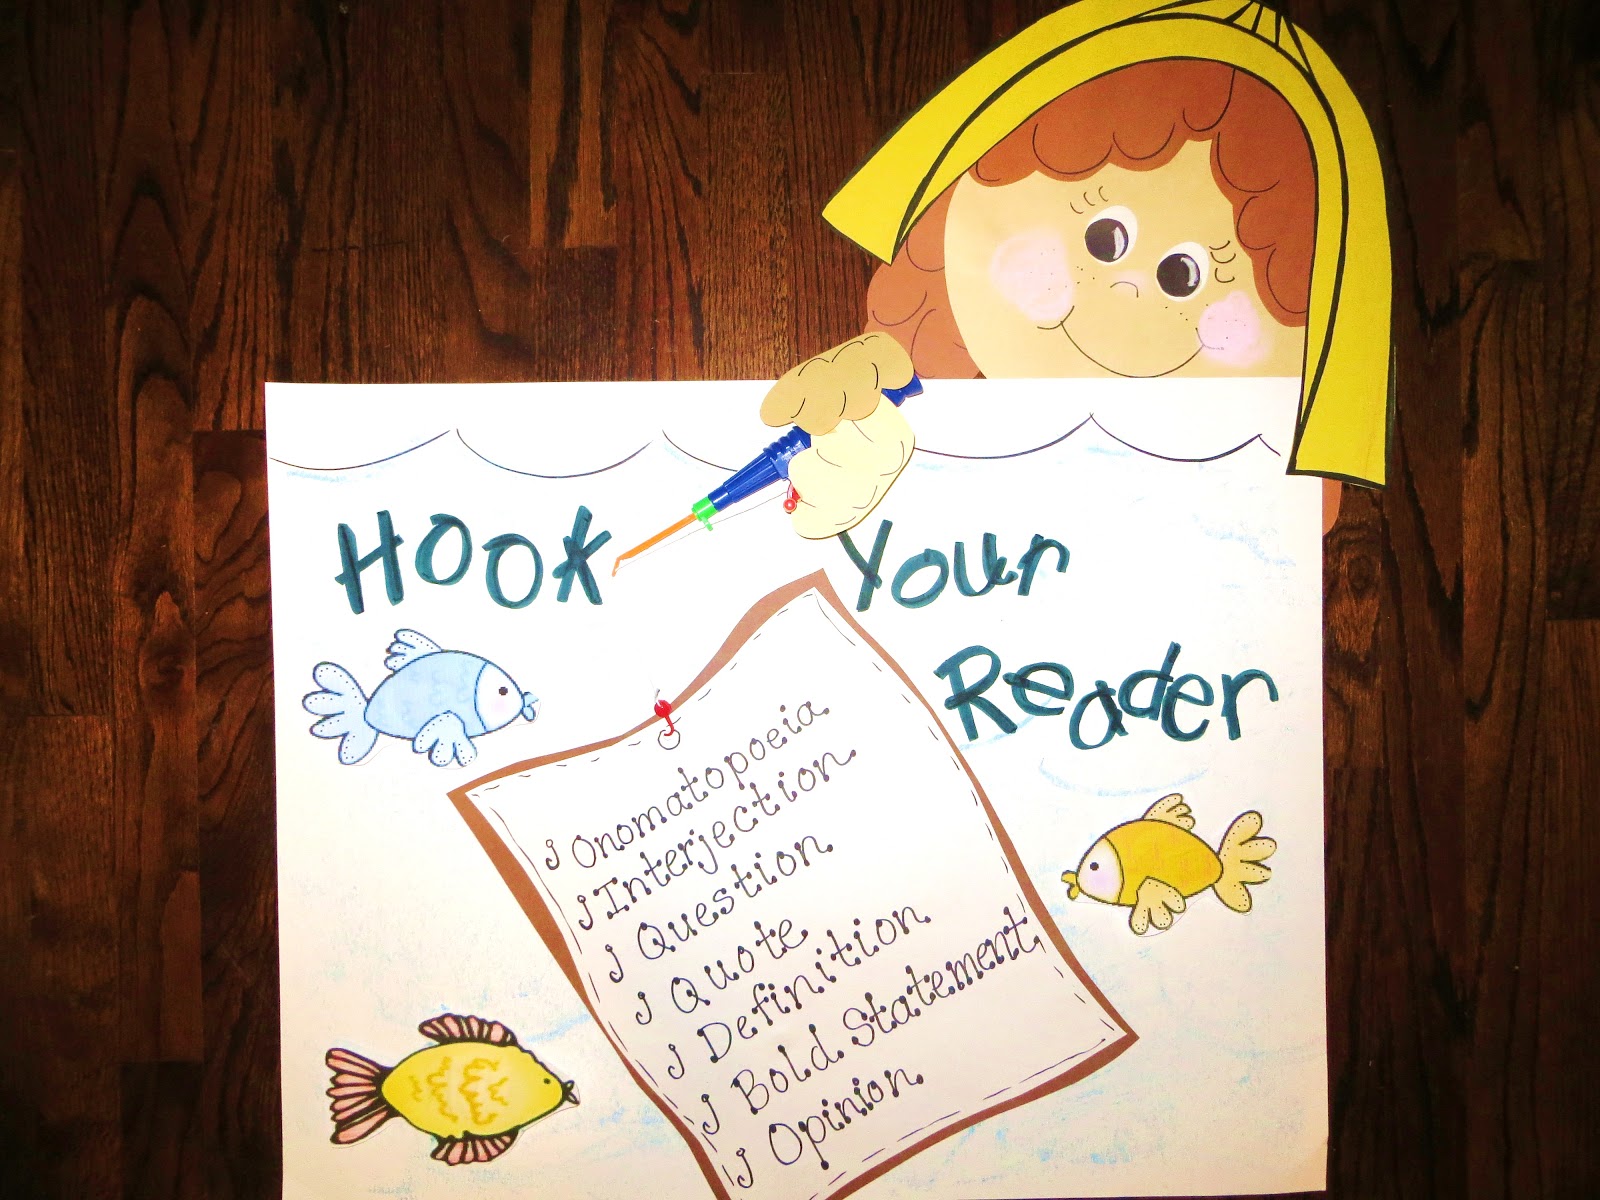 Hook Your
Reader
Onomatopoeia
Interjection
Question
Quote
Definition
Bold Statement
Opinion